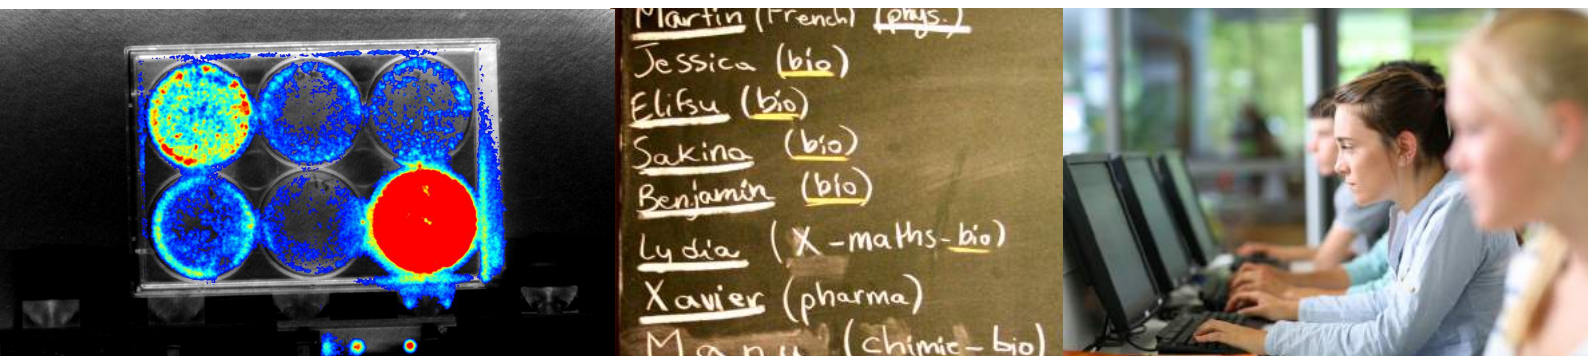 Martin (French) (phys.)
Jessica (bio)
Elifsu (bio)
Sakina (bio)
Benjamin (bio)
Lydia (X-maths-bio)
Xavier (pharma)
Manu (chimie-bio)